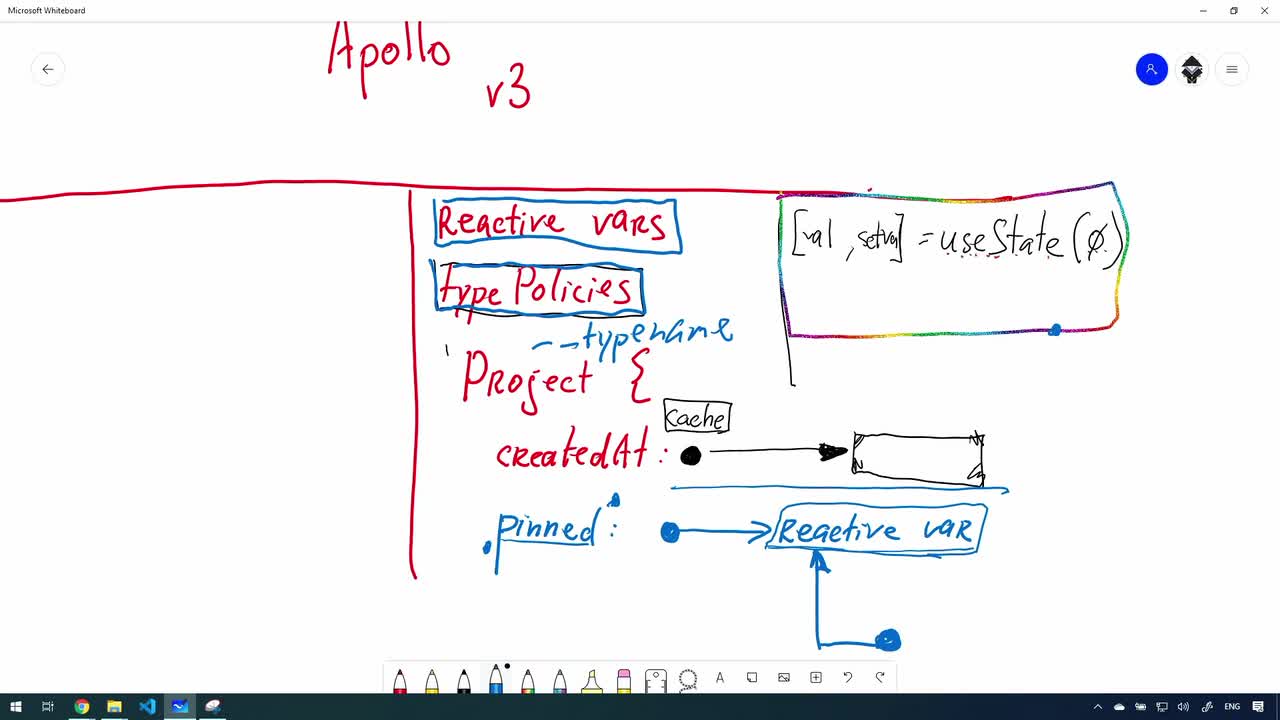 Microsoft Whiteboard
Apollo
v3
Reactive vars
[val , setval] = useState(0)
type Policies
__typename
Project {
cache
createdAt :
pinned :
Reactive var
A
ENG